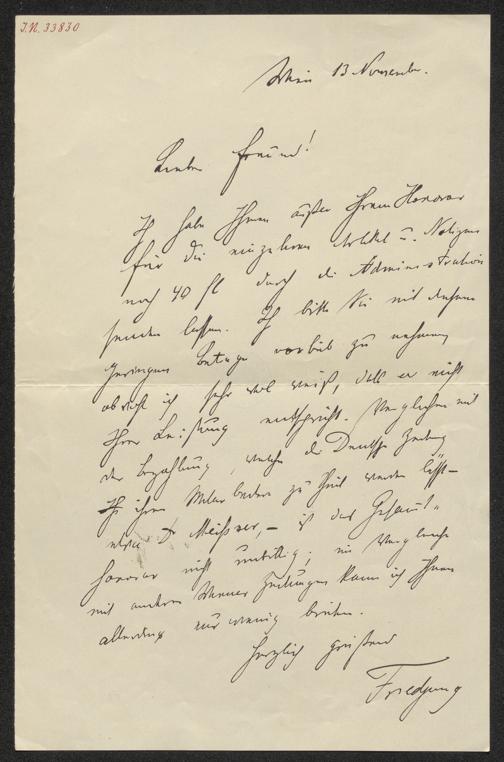 I.N. 33830
Wien 13 November.
Lieber Freund!
Ich habe Ihnen außer Ihrem Honorar
für die einzelnen Artikel u. Notizen
noch 40 fl durch die Administration
senden lassen. Ich bitte Sie mit diesem
geringen Betrage vorlieb zu nehmen
obwohl ich sehr wol weiß, daß er nicht
Ihrer Leistung entspricht. Verglichen mit
der Bezahlung, welche die Deutsche Zeitung
ihren Mitarbeitern zu Theil werden läßt –
Dr Meißner, – ist das Gesammt-
honorar nicht unbillig; im Vergleiche
mit anderen Wiener Zeitungen kann ich Ihnen
allerdings nur wenig bieten.
Herzlich grüßend
Friedjung